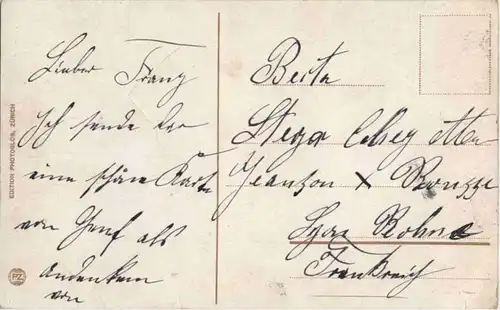 Lieber Franz
Ich sende Dir
eine schöne Karte
von Genf als
Andenken
von
EDITION PHOTOGLOB, ZÜRICH
PZ
Berta
Jeanson X
Lyon Rohne
Frankreich